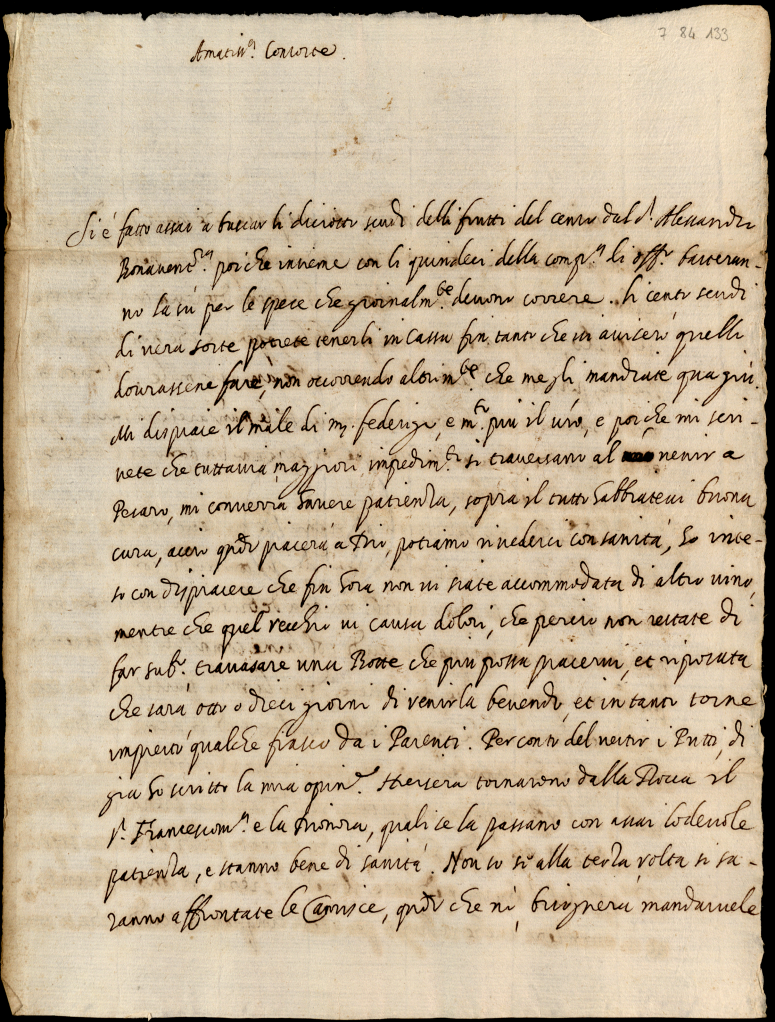 7 84 133
Amatiss.a Consorte.
Si è fatto assai a buscar li diciotto scudi delli frutti del censo dal s.r Alessandro
Bonavent.ra poiche insieme con li quindeci della comp.a li off.r basteran-
no la sù per le spese che giornalm.te devono correre. li cento scudi
di vera sorte potrete tenerli in cassa fin tanto che vi aviserò quello
dovrassene fare, non occorrendo altrim.te che me gli mandiate qua giù.
Mi dispiace il male di m.r federigo, e m.to più il vro, e poiche mi scri-
vete che tuttavia maggiori impedim.ti si traversano al venir a
Pesaro, mi converrà havere patienza, sopra il tutto habbiatevi buona
cura, acciò qndo piacerà a Dio, potiamo rivederci con sanità, ho inte-
so con dispiacere che fin hora non vi siate accommodata di altro vino,
mentre che quel vecchio vi causa dolori, che perciò non restate di
far sub.o travasare una Botte che più possa piacervi, et riposata
che sarà otto o dieci giorni di venirla bevendo, et in tanto torne
impresto qualche fiasco da i Parenti. Per conto del vestir i Putti, di
già ho scritto la mia opin.e Hiersera tornarono dalla Rocca il
s.r Francesco m.a e la Dionora, quali se la passano con assai lodevole
patienza, e stanno bene di sanità. Non so se alla terza volta si sa-
ranno affrontate le Camisce, qndo che nò, bisognerà mandarvele